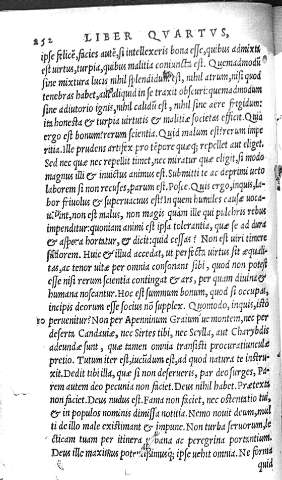 252 LIBER QVARTVS,
ipse felicē, facies autē, si intellexeris bona esse, quibus admixta
est uirtus, turpia, quibus malitia coniuncta est. Quemadmodū
sine mixtura lucis nihil splendidum est, nihil atrum, nisi quod
tenebras habet, aut aliquid in se traxit obscuri: quemadmodum
sine adiutorio ignis, nihil calidū est, nihil sine aere frigidum:
ita honesta & turpia uirtutis & malitiæ societas efficit. Quid
ergo est bonum? rerum scientia. Quid malum est? rerum impe
ritia. Ille prudens artifex pro tēpore quæq; repellet aut eliget.
Sed nec quæ repellit timet, nec miratur quæ eligit, si modo
magnus illi & inuictus animus est. Submitti te ac deprimi ueto
laborem si non recuses, parum est. Posce. Quis ergo, inquis, la-
bor friuolus & superuacuus est? In quem humiles causæ uoca-
uerint, non est malus, non magis quàm ille qui pulchris rebus
impenditur: quoniam animi est ipsa tolerantia, quæ se ad dura
& aspera hortatur, & dicit: quid cessas? Non est uiri timere
sudorem. Huic & illud accedat, ut perfecta uirtus sit æquali-
tas, ac tenor uitæ per omnia consonans sibi, quod non potest
esse nisi rerum scientia contingat & ars, per quam diuina &
humana noscantur. Hoc est summum bonum, quod si occupas,
incipis deorum esse socius nō supplex. Quomodo, inquis, istò
10 peruenitur? Non per Apenninum Graium ue montem, nec per
deserta Candauiæ, nec Sirtes tibi, nec Scylla, aut Charybdis
adeundæ sunt, quæ tamen omnia transisti procuratiunculæ
precio. Tutum iter est, iucūdum est, ad quod natura te instru-
xit. Dedit tibi illa, quæ si non deserueris, par deo surges. Pa-
rem autem deo pecunia non faciet. Deus nihil habet. Prætexta
non faciet. Deus nudus est. Fama non faciet, nec ostentatio tui,
& in populos nominis dimissa notitia. Nemo nouit deum, mul
ti de illo malè existimant & impune. Non turba seruorum, le
cticam tuam per itinera urbana ac peregrina portantium.
Deus ille maximus potentissimusq; ipse uehit omnia. Ne forma
quid